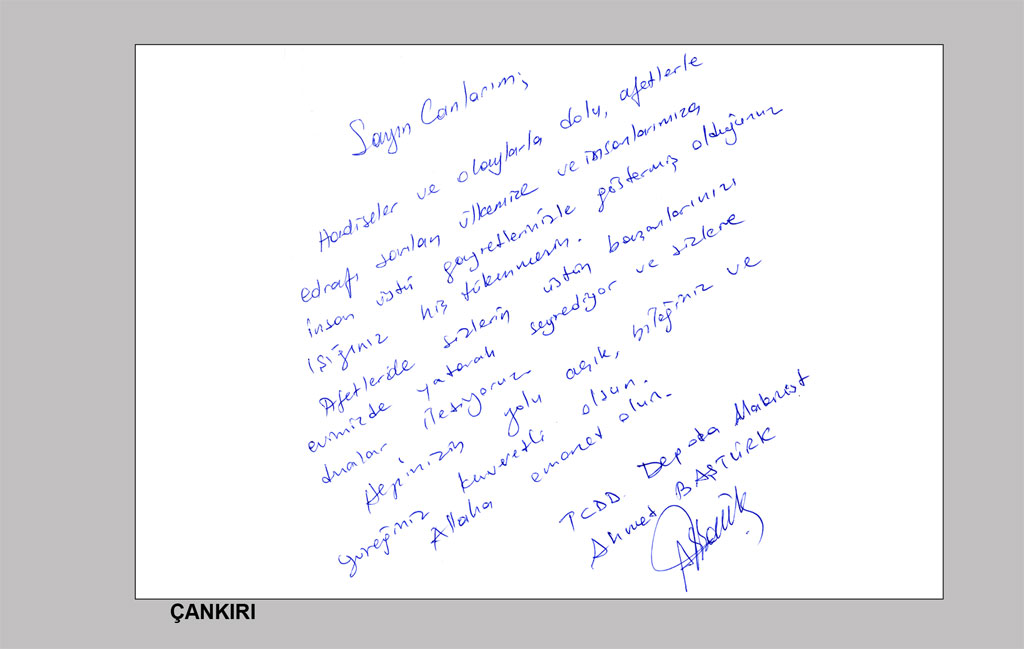 Sayın Canlarım;
Hadiseler ve olaylarla dolu, afetlerle
edrafı sarılan ülkemize ve insanlarımıza
insan üstü gayretlerinizle göstermiş olduğunuz
ışığınız hiç tükenmesin.
Afetlerde sizlerin üstün başarılarınızı
evimizde yatarak seyrediyor ve sizlere
dualar iletiyoruz.
Hepinizin yolu açık, bileğiniz ve
yüreğiniz kuvvetli olsun.
Allaha emanet olun.
TCDD Depoda Makinist
Ahmet BAŞTÜRK
ÇANKIRI